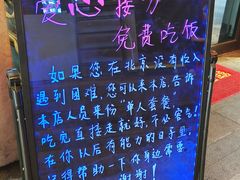 爱心接力
免费吃饭
如果您在北京没有收入
遇到困难,您可以来本店,告诉
本店人员来份“单人套餐”,
吃完直接走就好,不必客气!
在你以后有能力的日子里,
记得帮助一下你身边需要
谢谢!